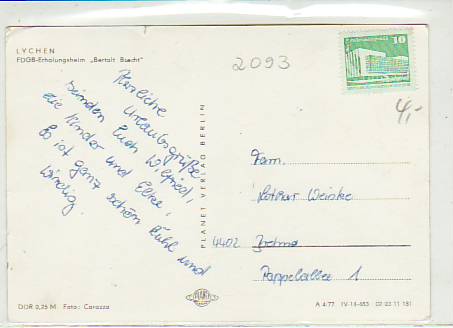 LYCHEN
FDGB-Erholungsheim „Bertolt Brecht"
2093
10
4,-
Herzliche
Urlaubsgrüße
senden Euch Wilfried,
die Kinder und Elke,
Es ist ganz schön kühl und
windig.
PLANET VERLAG BERLIN
Fam.
Lothar Weinke
4402
Pappelallee 1
PLANET
DDR 0,25 M Foto: Carozza
A 4/77 IV-14-853 02 03 11 181